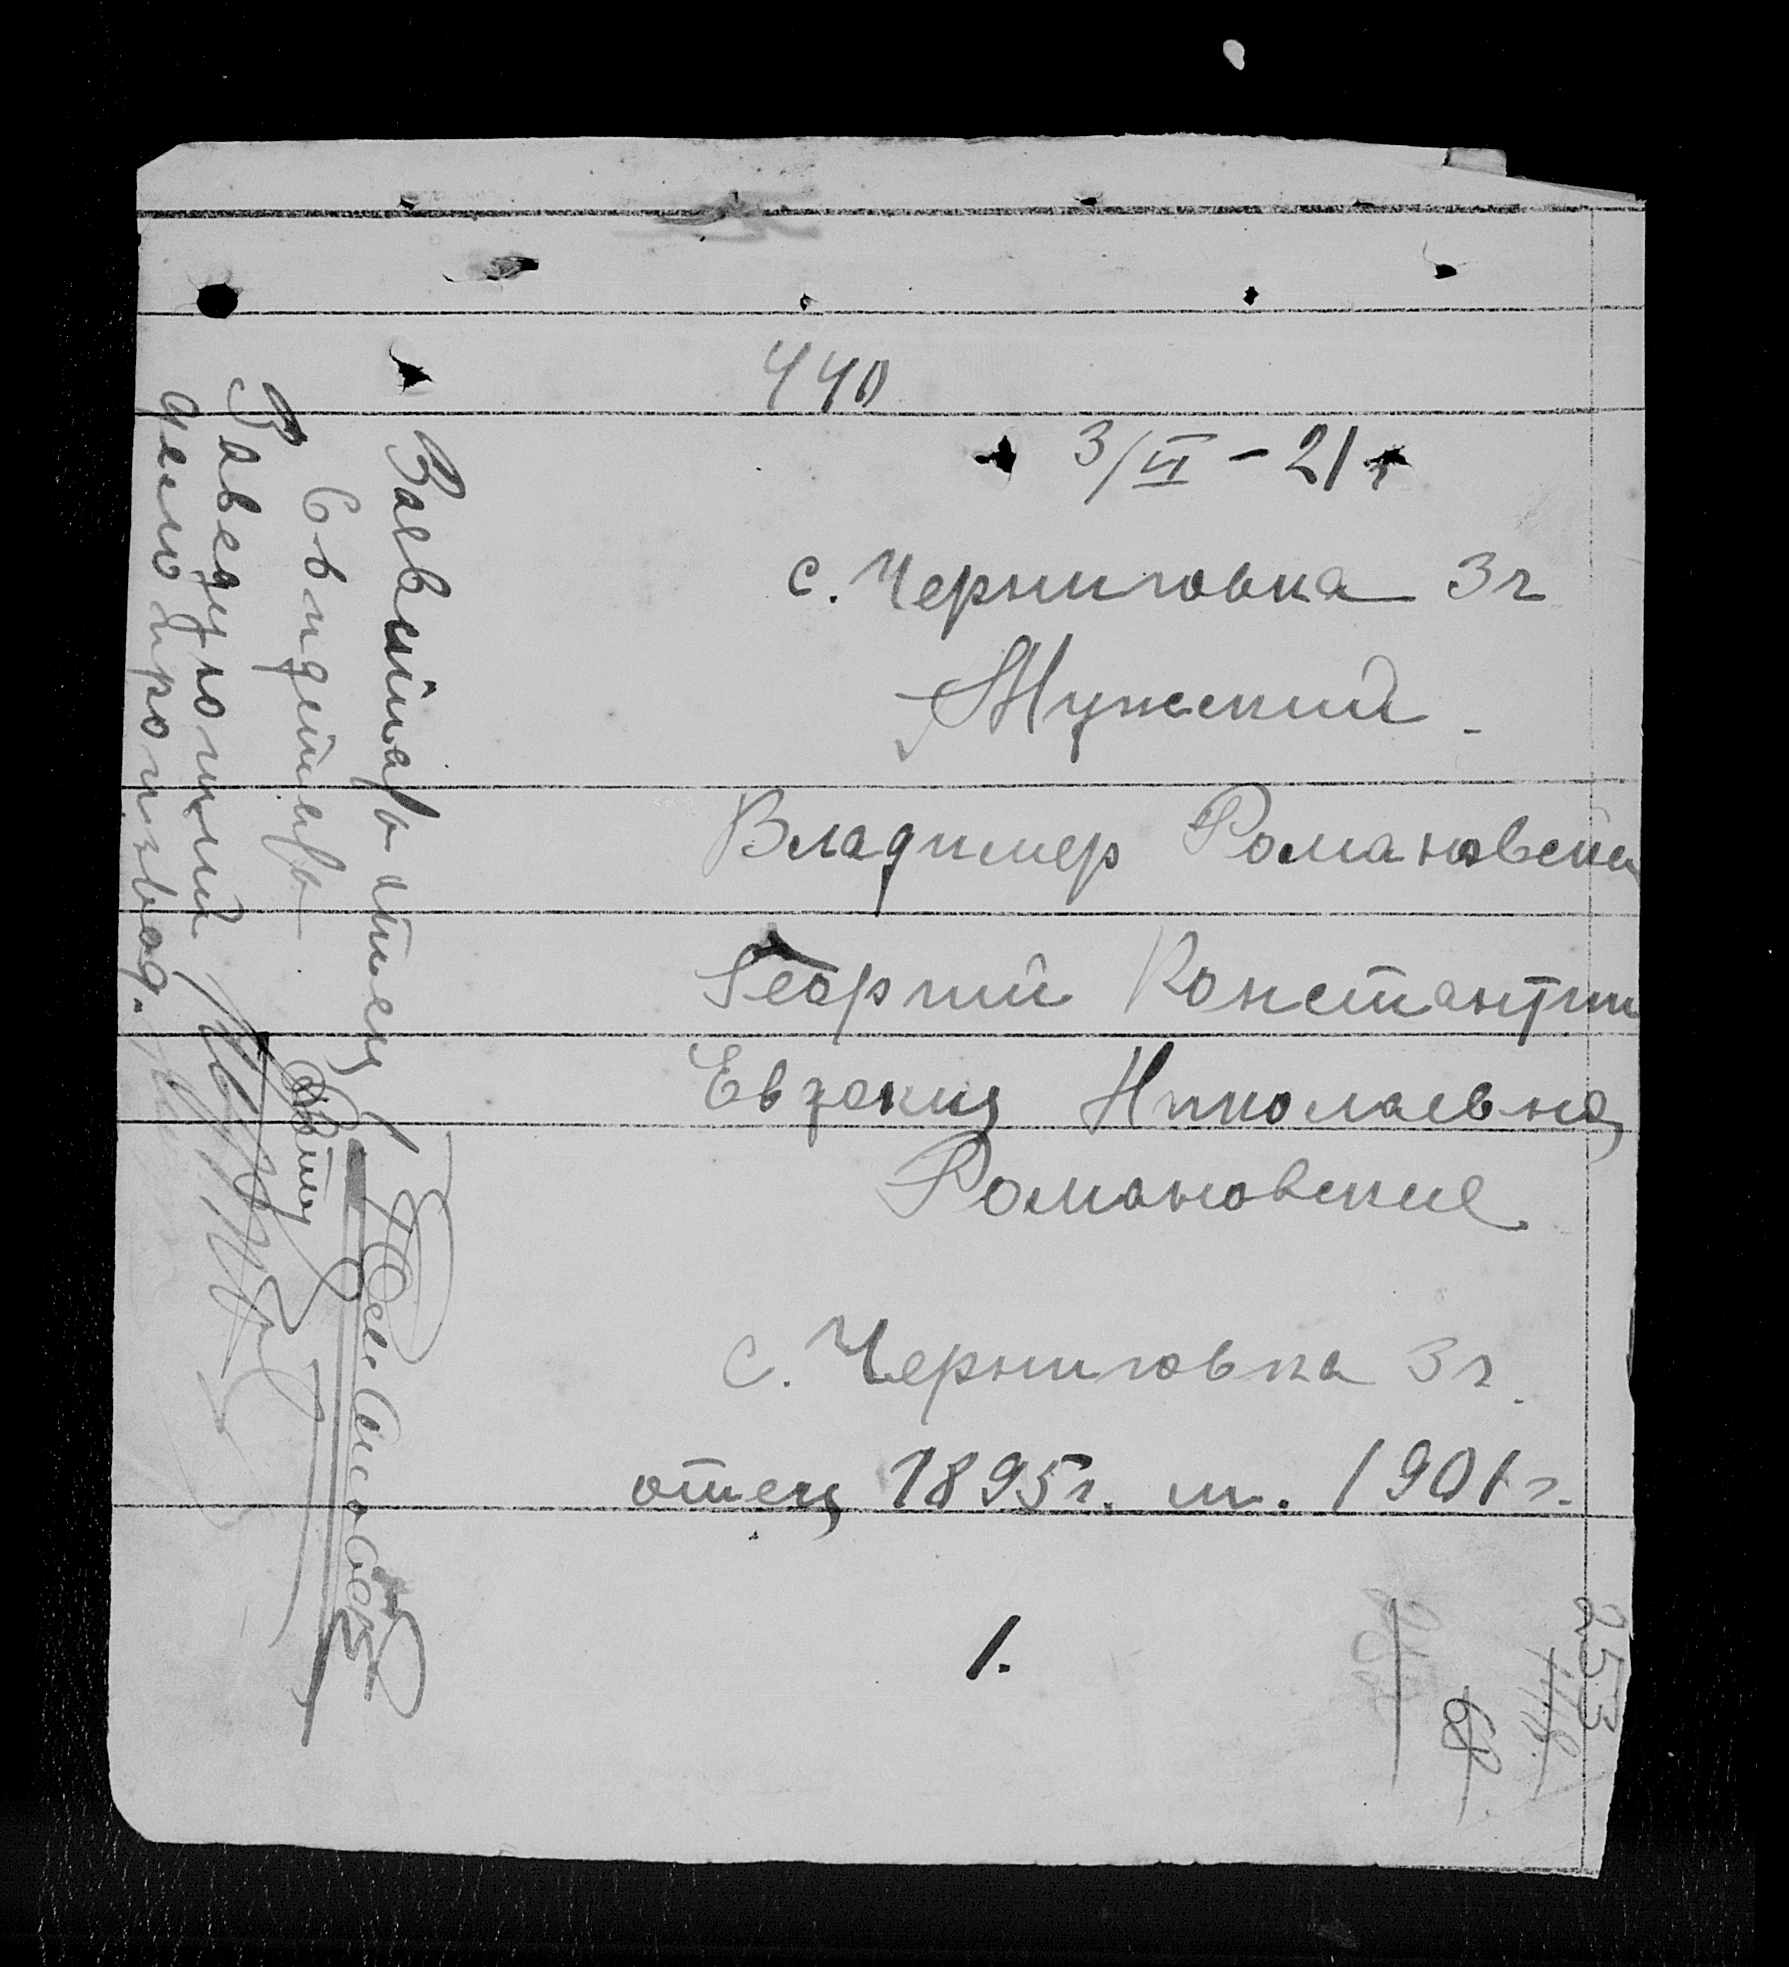 440
3/VI - 21 г
с. Черниговка 3 г
Мужский
Владимер Романовский
Георгий Константин
Евдокия Николаевна
Романовские
с. Черниговка 3 г.
отец 1895 г. м. 1901 г.
1.
Заевитель отец
Заведующий
дело производ.
253
68